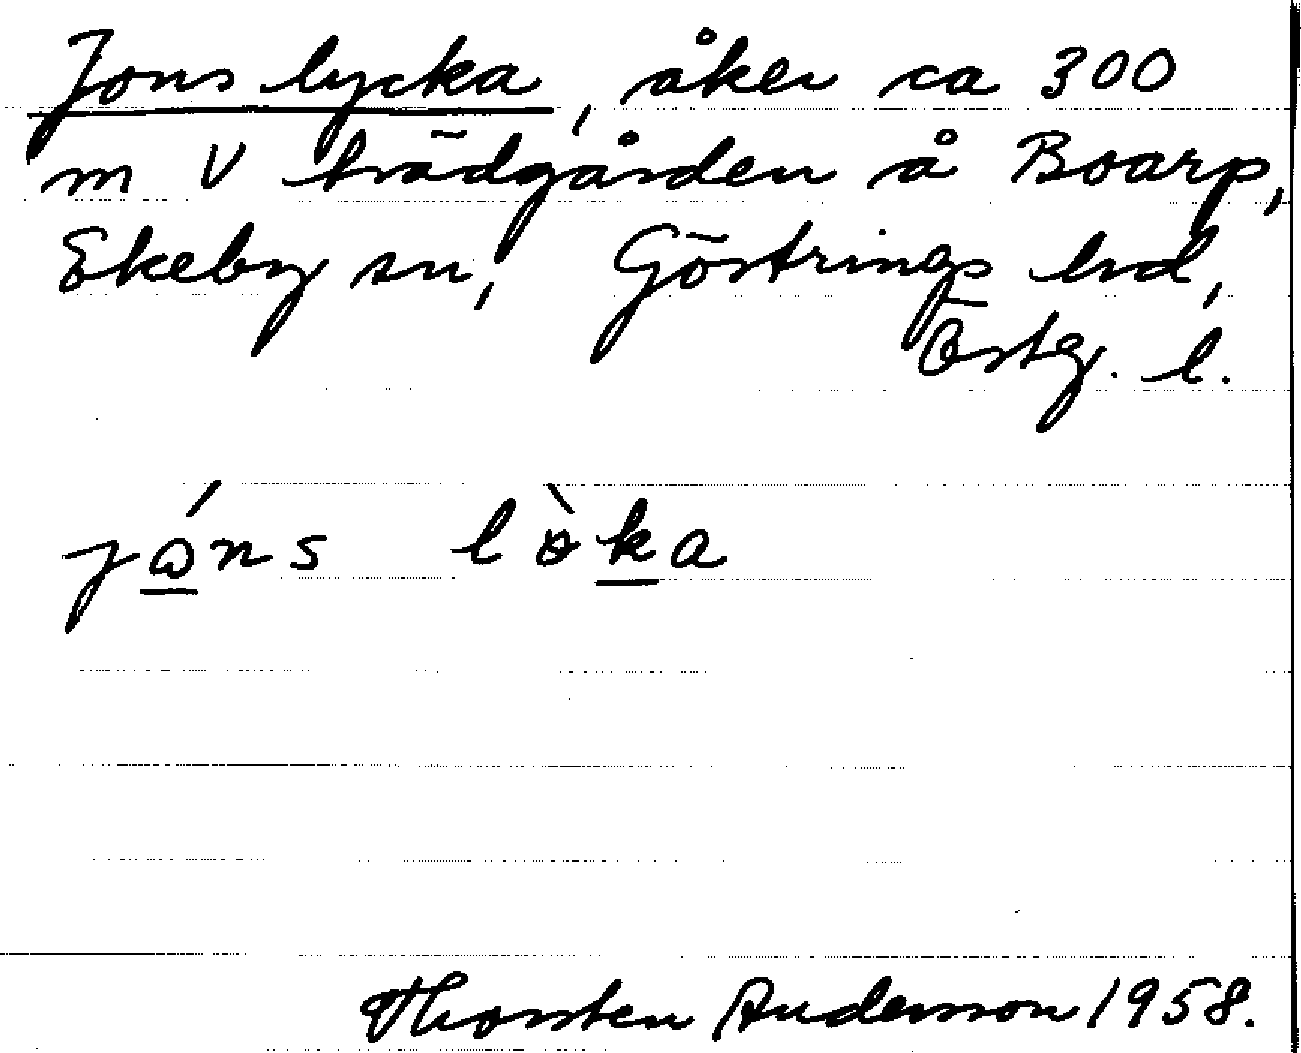 Jons lycka, åker ca 300
m V trädgården å Boarp,
Ekeby sn, Göstrings hd,
Östg. l.
jó̲ns lö̀k̲a
Thorsten Andersson 1958.